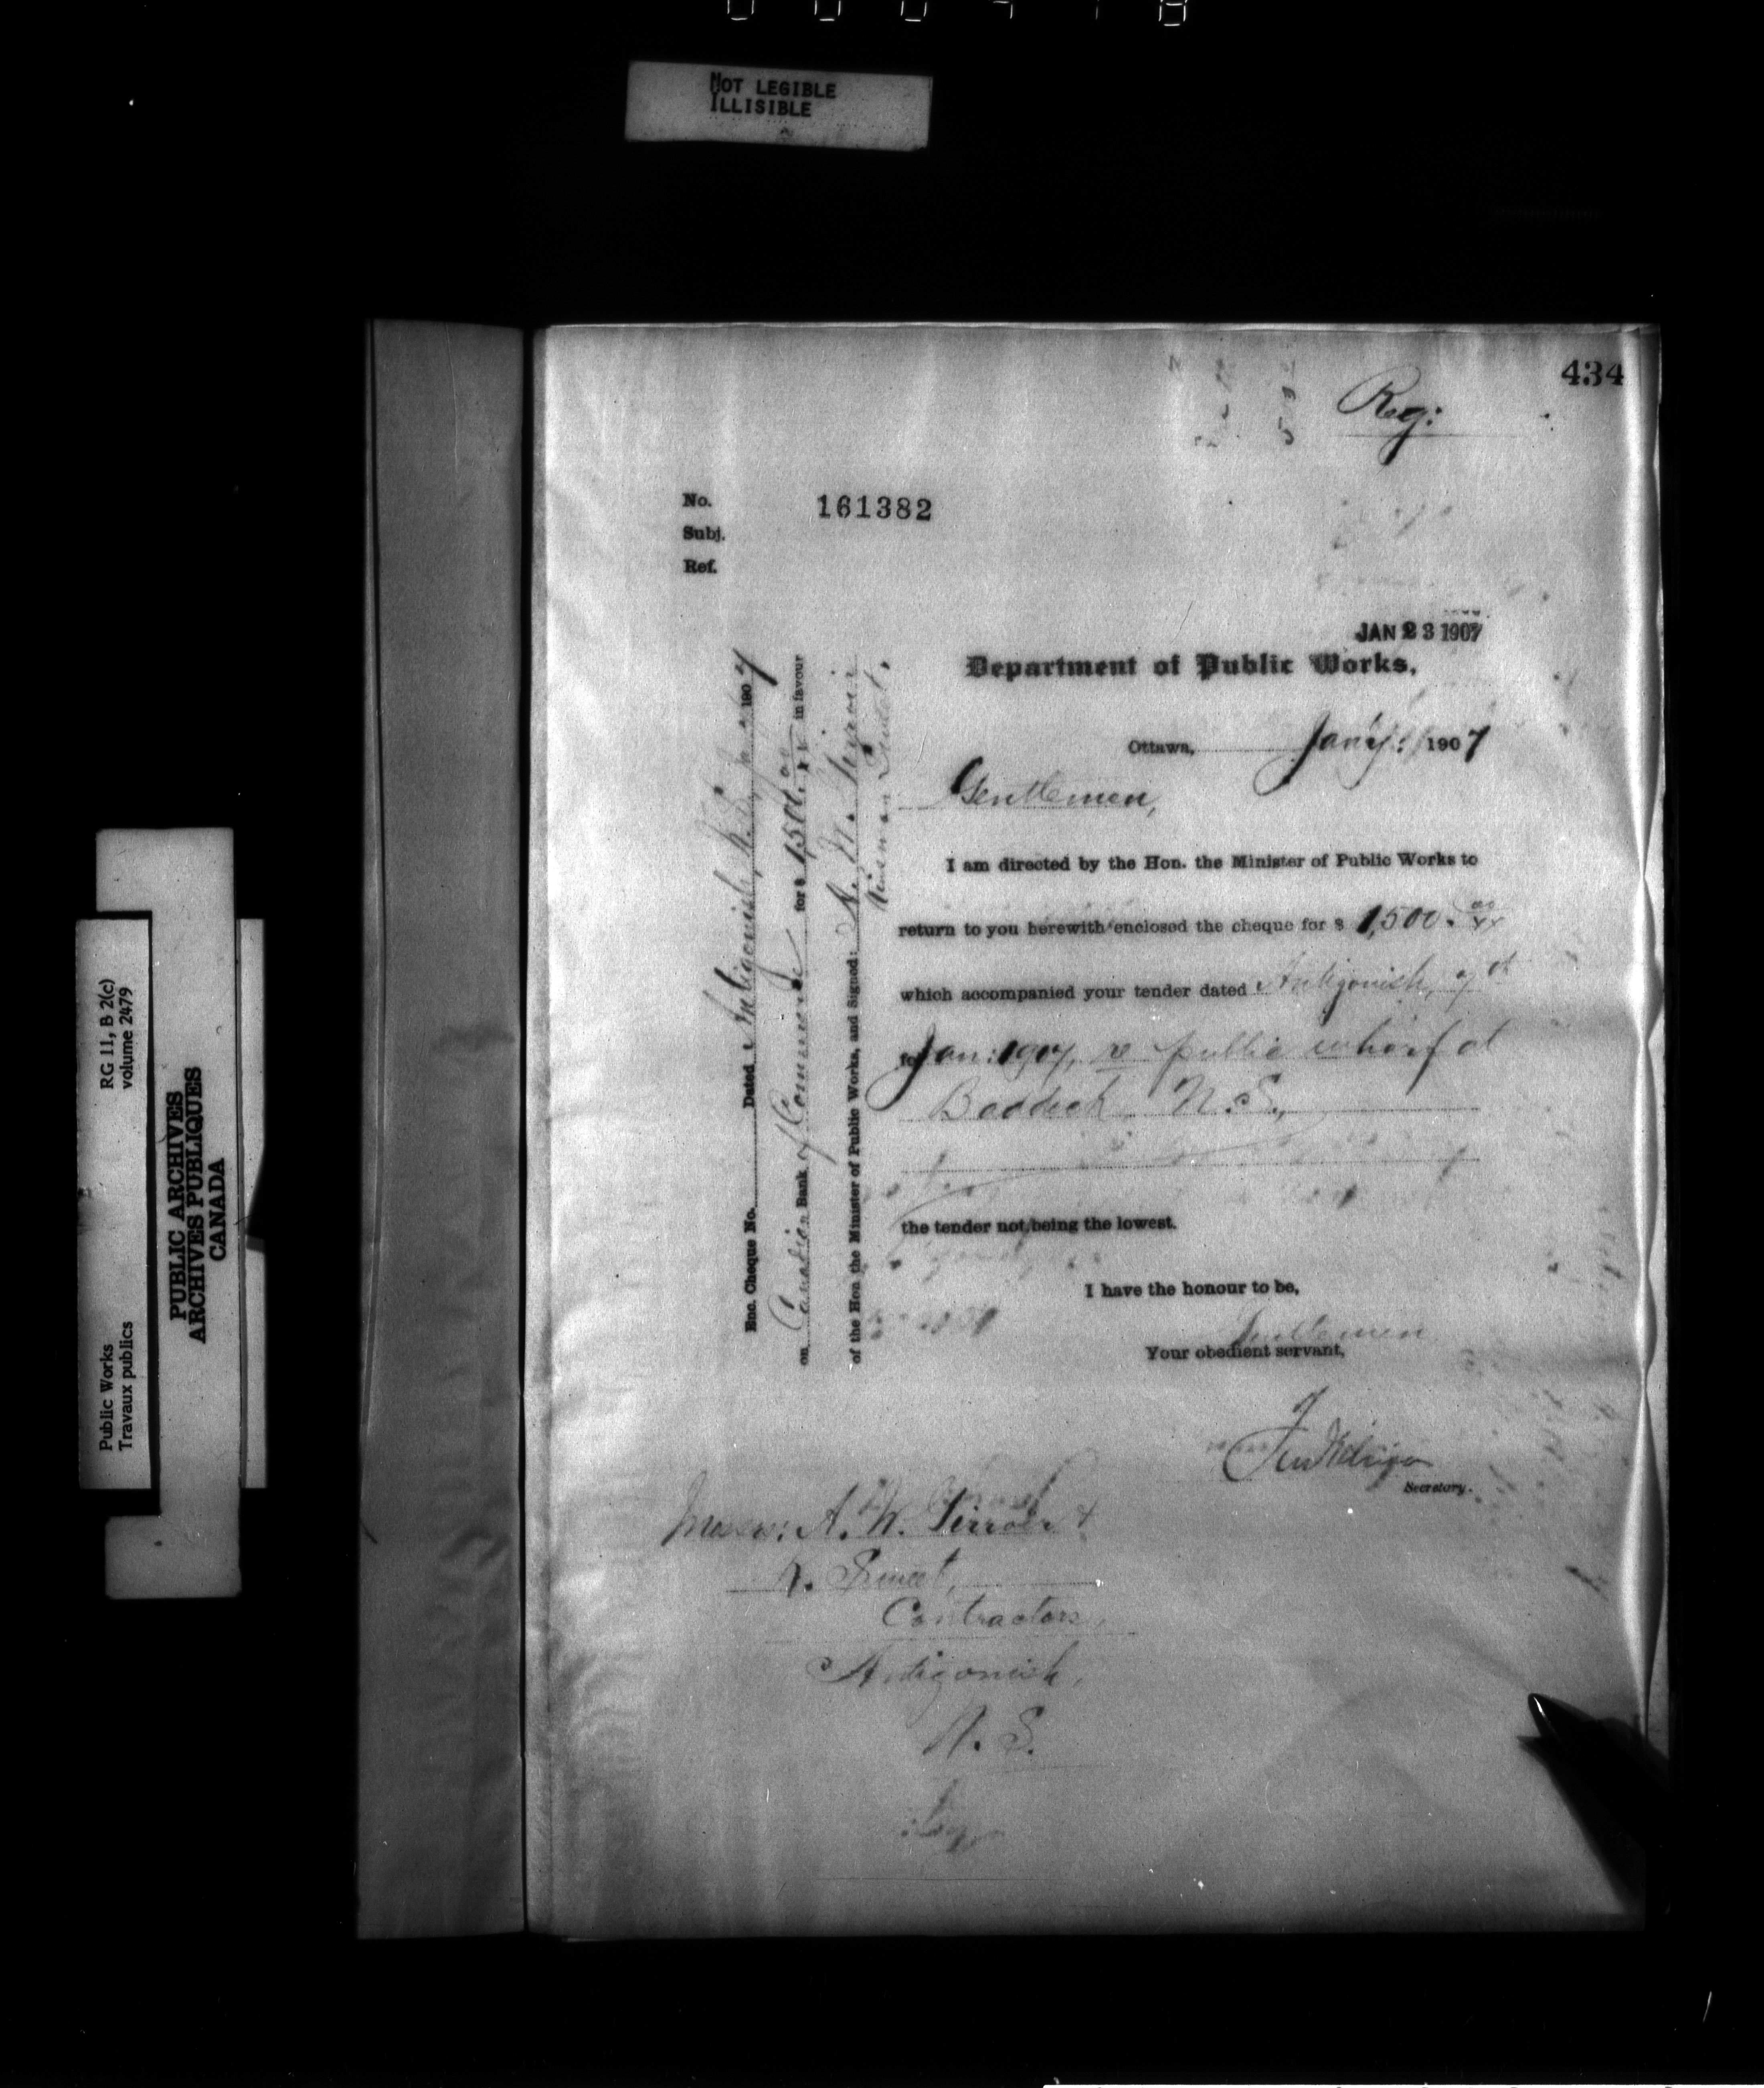 NOT LEGIBLE
ILLISIBLE
434
Reg:
No. 161382
Subj.
Ref.
JAN 23 1907
Department of Public Works.
Ottawa, Jany: 1907
Gentlemen,
I am directed by the Hon. the Minister of Public Works to
return to you herewith enclosed the cheque for $ 1,500. 00/xx
which accompanied your tender dated Antigonish, 7th
for Jan: 1907, re public wharf at
Baddeck N.S.,
the tender not being the lowest.
I have the honour to be,
Gentlemen
Your obedient servant,
Secretary.
Messrs: A. W. Girroir &
Contractors,
Antigonish,
N. S.
Enc. Cheque No. Dated Antigonish, N.S. 1907
on Canadian Bank of Commerce for $ 1,500. 00/xx in favour
of the Hon the Minister of Public Works, and Signed: A. W. Girroir
RG 11, B 2(c)
volume 2479
Public Works
Travaux publics
PUBLIC ARCHIVES
ARCHIVES PUBLIQUES
CANADA